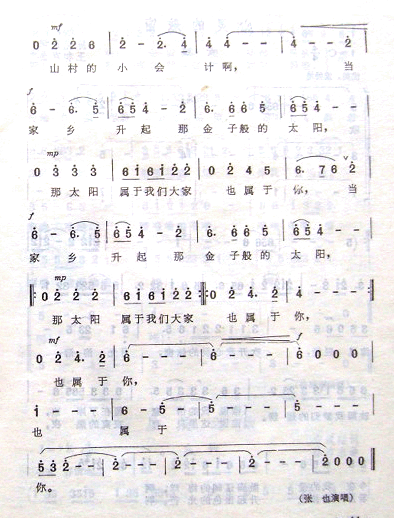 mf
0 2 2 6 | 2 - 2. 4 | 4 4 - - | 4 - - 2 |
山村的 小会 计啊, 当
f
6 - 6. 5 | 6 5 4 - 2 | 6. 6 6 5 | 6 5 4 - - |
家乡 升起那金子般的太阳,
mp
0 3 3 3 | 6 1 6 1 2 2 | 0 2 4 5 | 6. 7 6 2 |
那太阳 属于我们大家 也属于你, 当
f
6 - 6. 5 | 6 5 4 - 2 | 6. 6 6 5 | 6 5 4 - - |
家乡 升起那金子般的太阳,
mp
0 2 2 2 | 6 1 6 1 2 2 :||: 0 2 4. 2 | 4 - - - :||
那太阳 属于我们大家 也属于你,
mf f
0 2 4. 2 | 6 - - - | 6 - - - | 6 0 0 0 |
也属于你,
i - - - | 6 - 5 - | 5 - - - | 5 - - - |
也 属于
5 3 2 - - | 2 - - - | 2 - - - | 2 0 0 0 ||
你。
(张 也演唱)